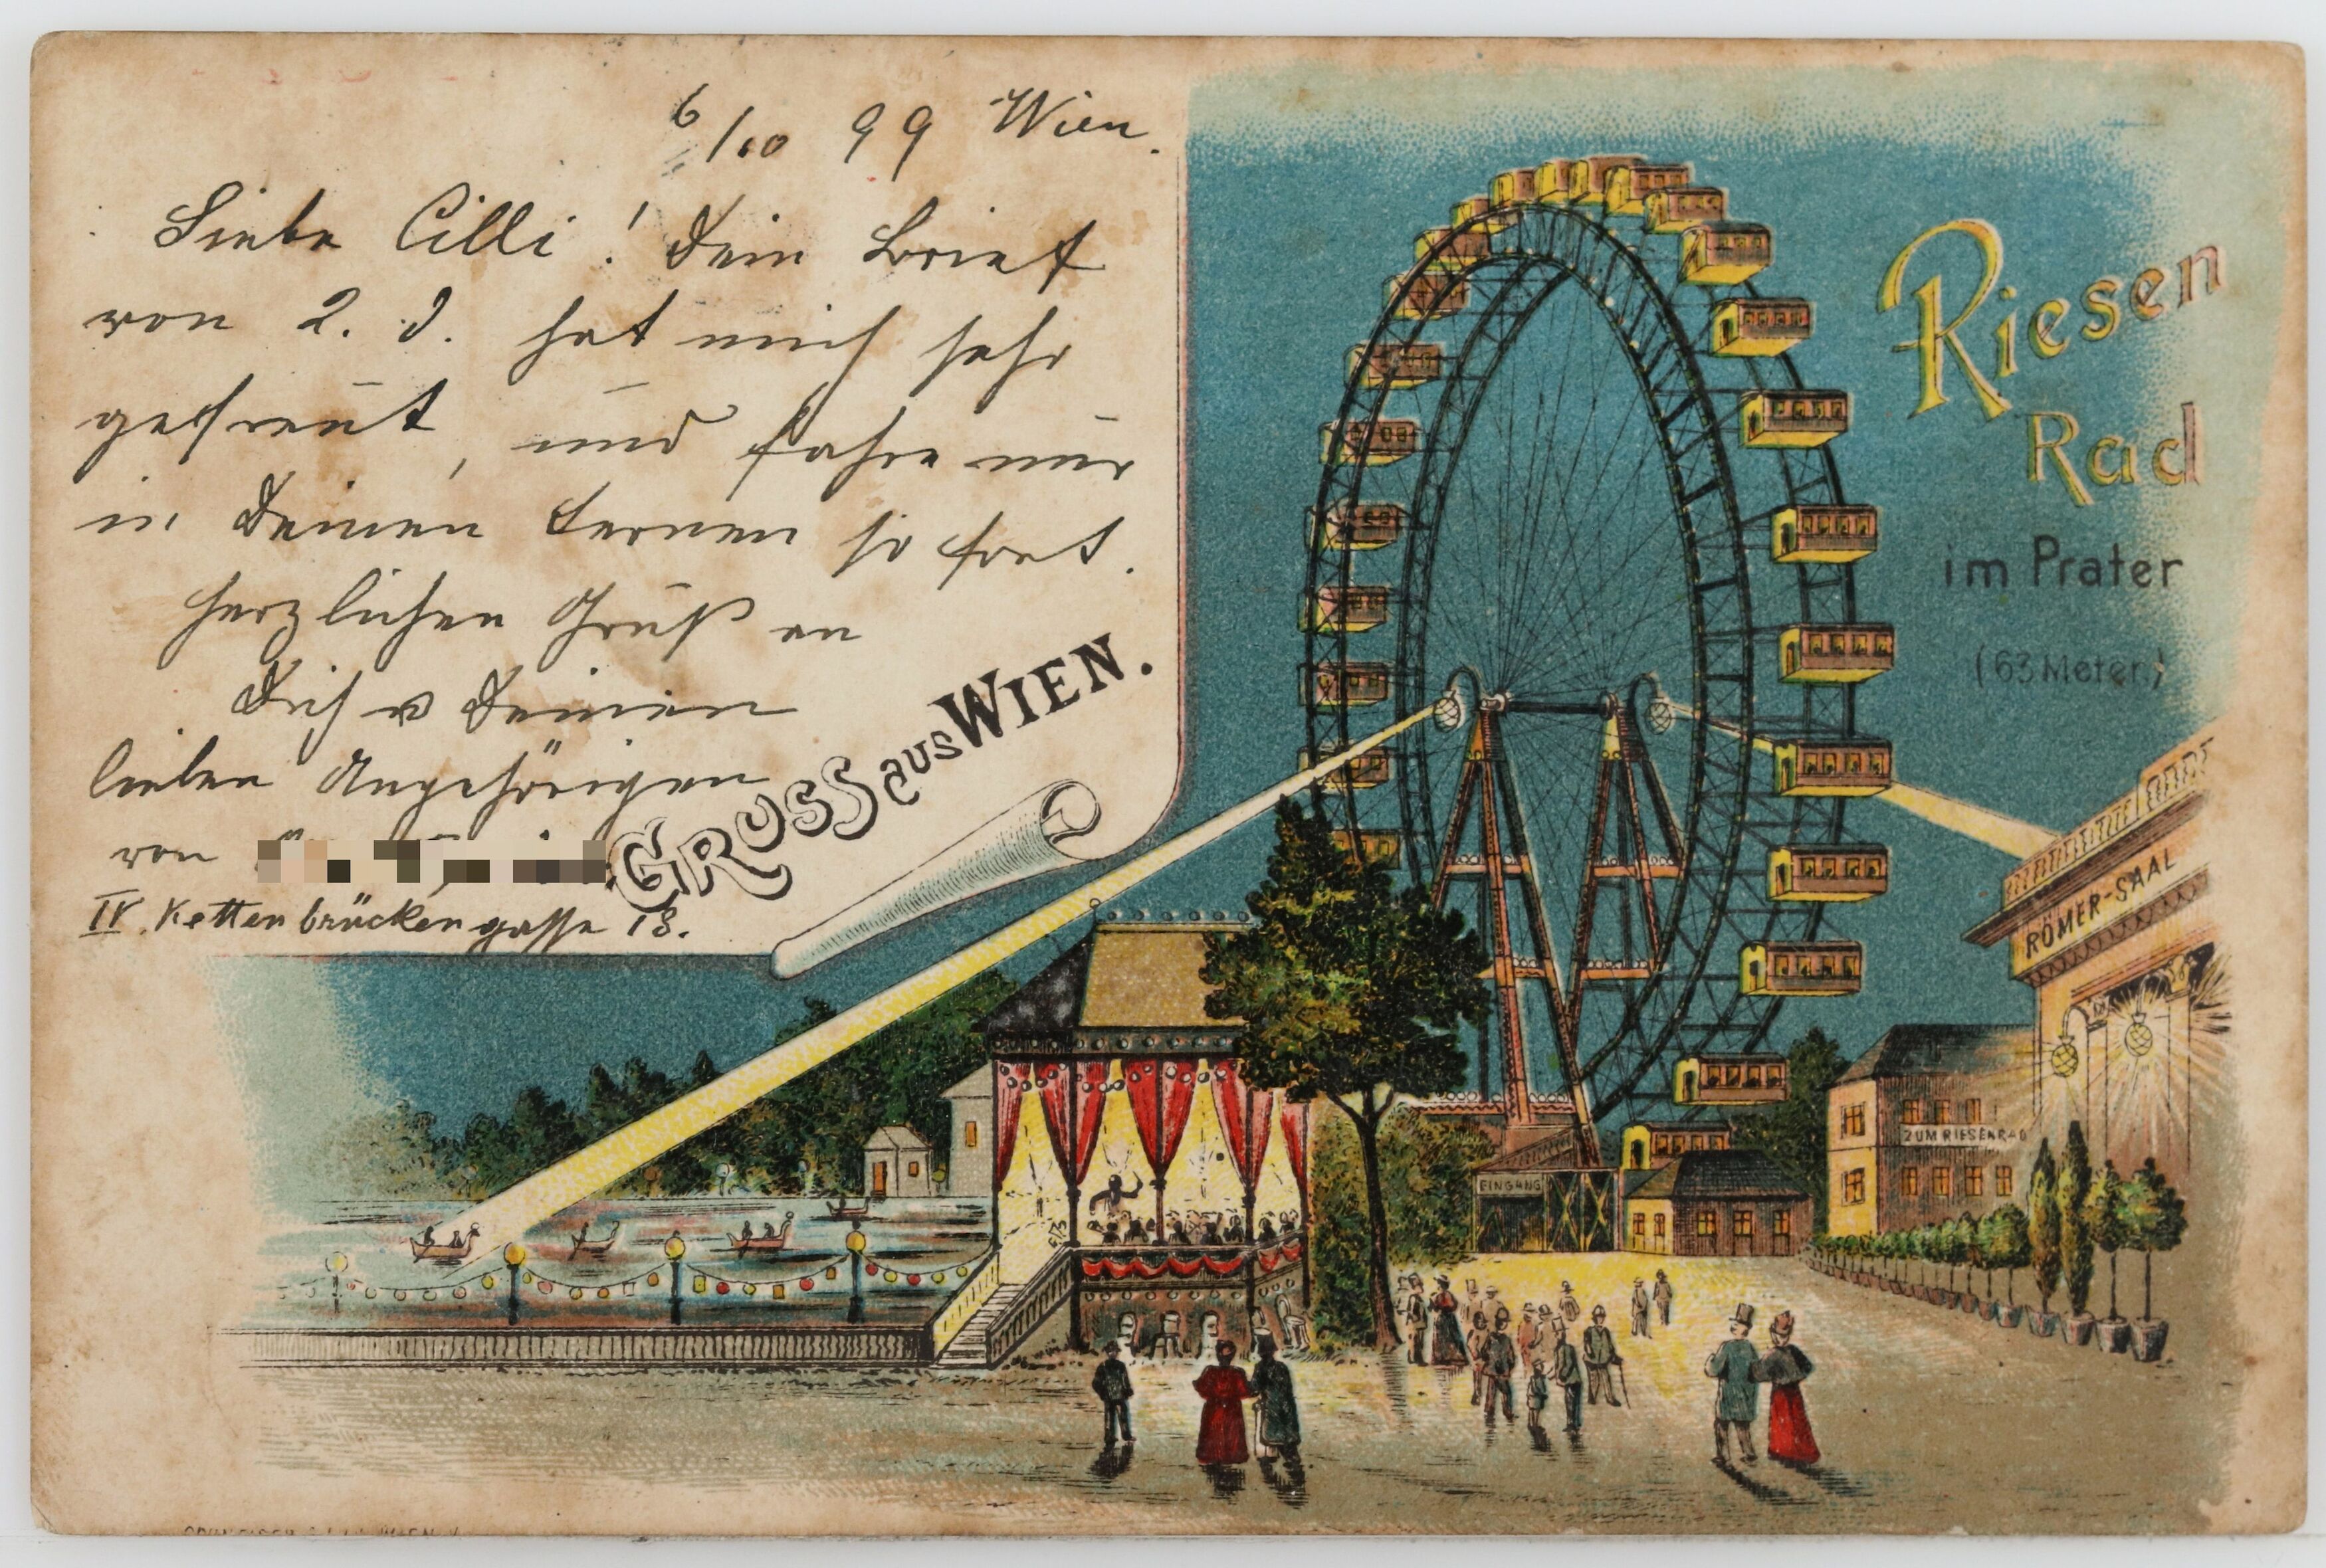 6/10 99 Wien.
Liebe Cilli! Dein Brief
von 2. d. hat mich sehr
gefreut, und fahre nur
in Deinen Lernen so fort.
Herzlichen Gruß an
Dich u Deinen
lieben Angehörigen
von
IV. Kettenbrückengasse 18.
GRUSS aus WIEN.
Riesen
Rad
im Prater
(63 Meter.)
RÖMER-SAAL
ZUM RIESENRAD
EINGANG